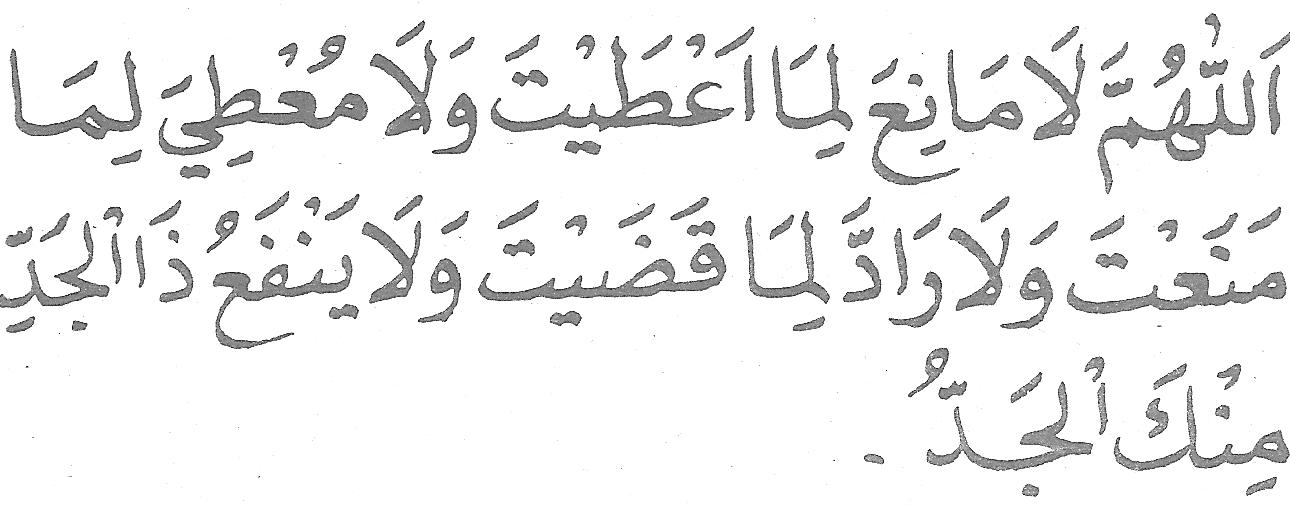 اَللّٰهُمَّ لَا مَانِعَ لِمَا اَعْطَيْتَ وَلَا مُعْطِيَ لِمَا
مَنَعْتَ وَلَا رَادَّ لِمَا قَضَيْتَ وَلَا يَنْفَعُ ذَا الْجَدِّ
مِنْكَ الْجَدُّ .